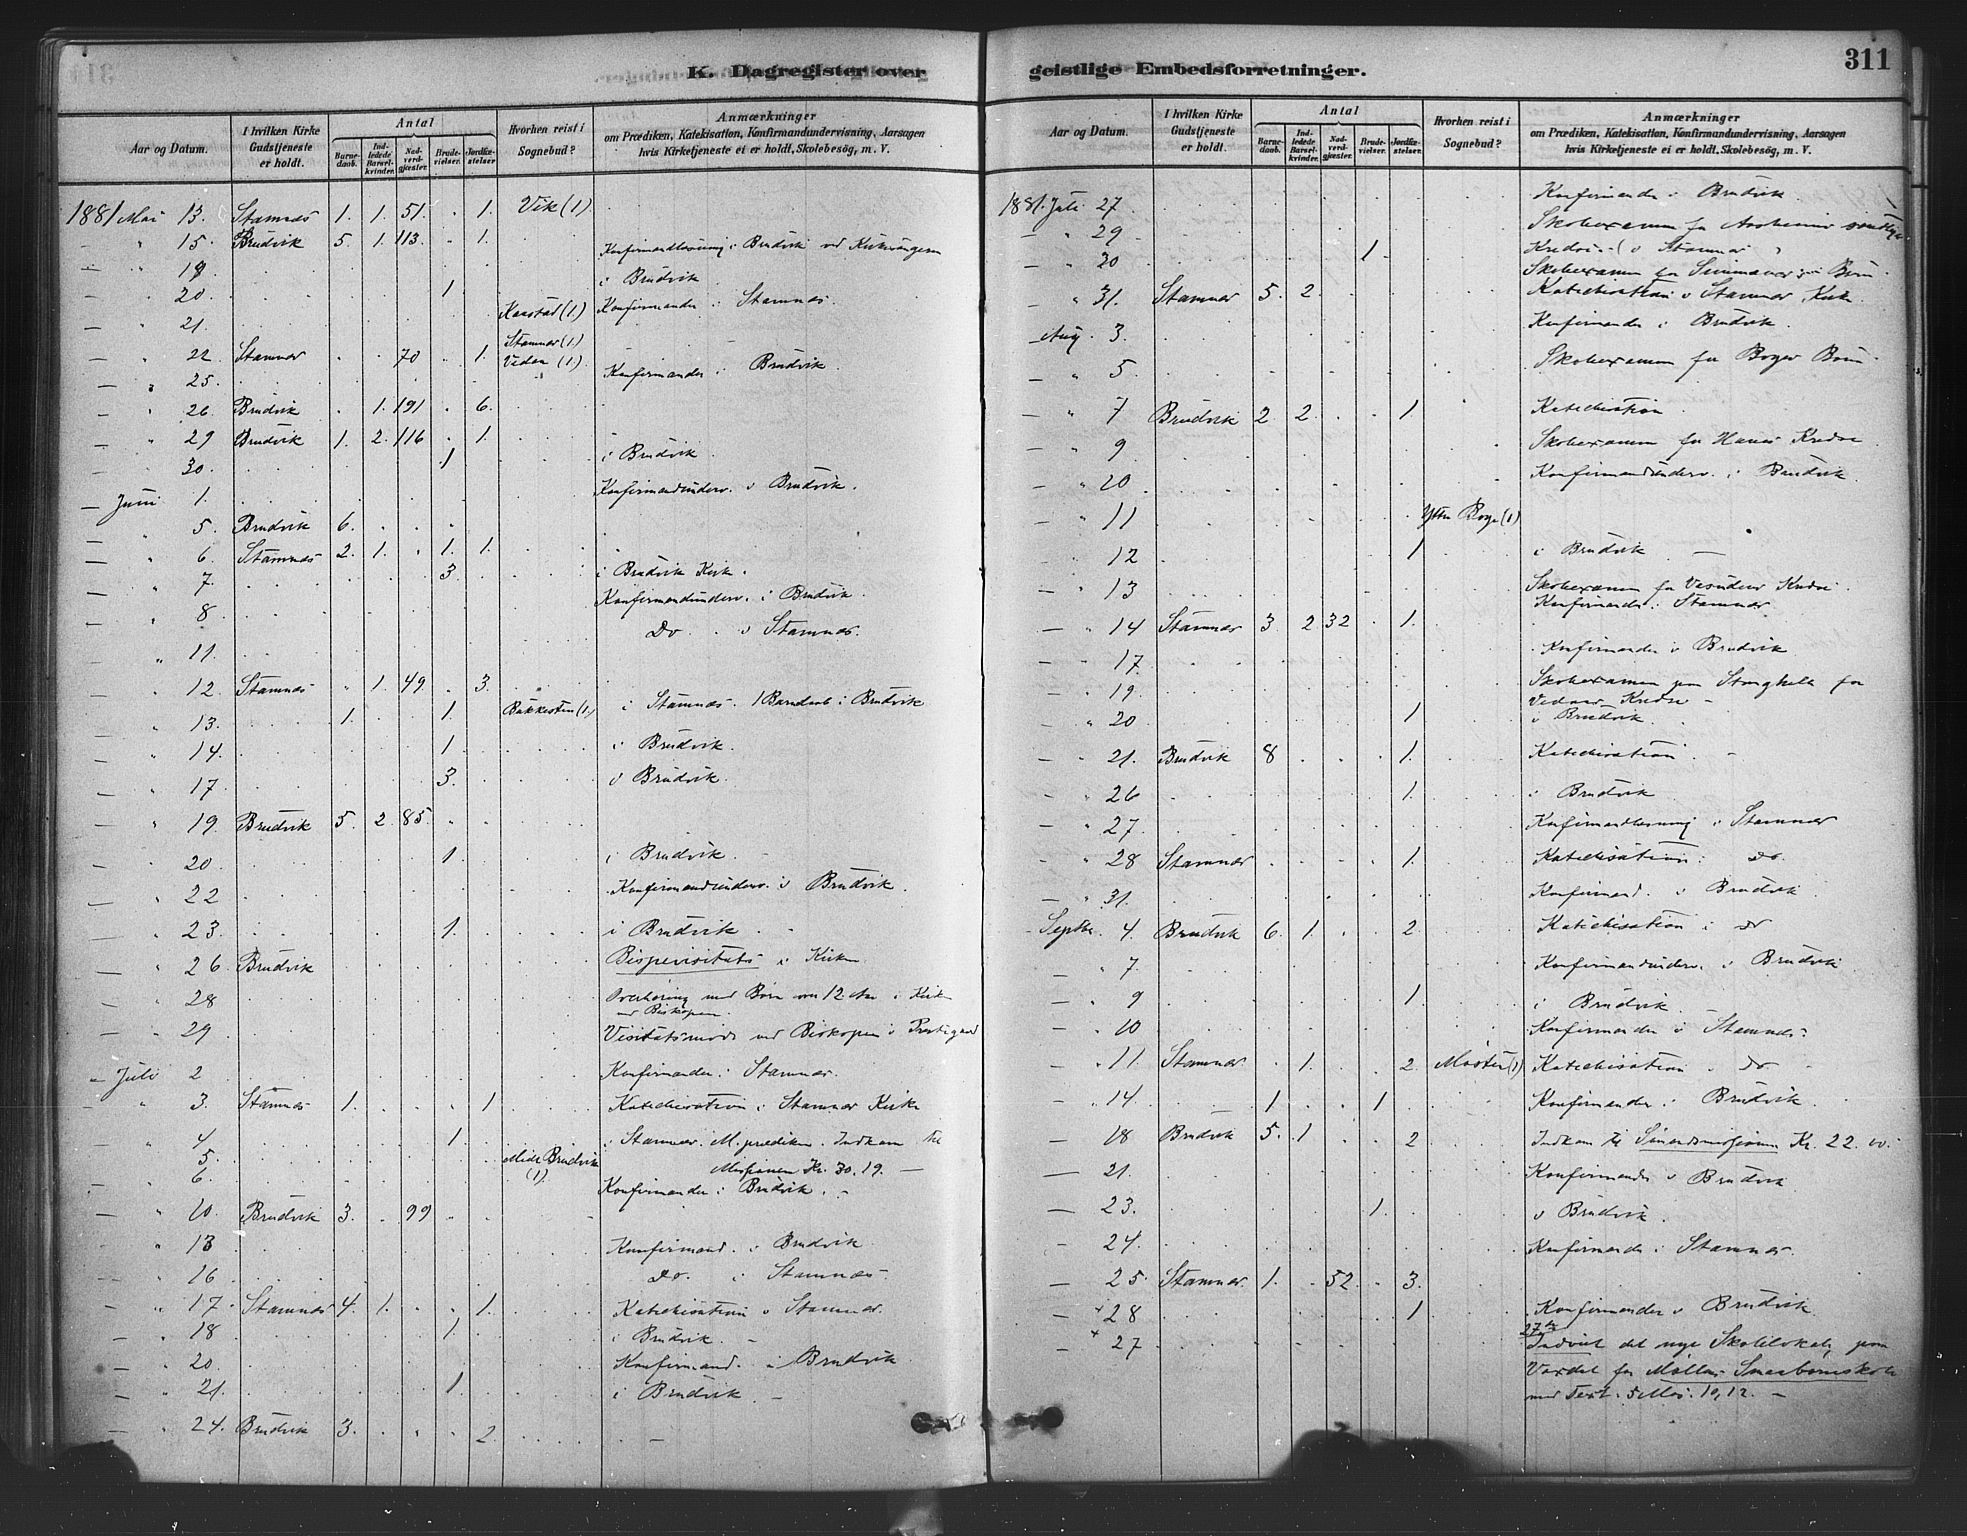 K. Dagregister over
geistlige Embedsforretninger.
311
Aar og Datum.
I hvilken Kirke Gudstjeneste er holdt.
Antal
Barnedaab.
Indledede Barselkvinder.
Nadverdgjester.
Brudevielser.
Jordfæstelser.
Hvorhen reist i Sognebud?
Anmærkninger
om Prædiken, Katekisation, Konfirmandundervisning, Aarsagen
hvis Kirketjeneste ei er holdt, Skolebesög, m. V.
1881 Mai 13. Stamnæs 1. 1. 51. 1. Vik (1)
15. Brudvik 5. 1. 113. 1. Konfirmandlæsning i Brudvik
19
20. 1 i Brudvik
21. (1) Konfirmander i Stamnæs.
22 Stamnær 70 1. Stamnær (1) (1)
25. Konfirmander i Brudvik
26 Brudvik 1. 191 6.
29 Brudvik 1. 2. 116 1.
30. 1 i Brudvik
Juni 1. Konfirmandunderv. i Brudvik.
5. Brudvik 6.
6 Stamnæs 2. 1. 1. 1.
7. 3. i Brudvik Kirk.
8. Konfirmandunderv. i Brudvik
11. Do. i Stamnær.
12 Stamnæs 1. 49. 3.
13. 1. 1. (1.) i Stamnæs. 1 Barnedaab i Brudvik
14. 1. i Brudvik.
17. 3. i Brudvik.
19. Brudvik 5. 2. 85.
20 1. i Brudvik.
22 Konfirmandunderv. i Brudvik.
23. 1. i Brudvik
26 Brudvik Bispevisitats i Kirken
28 Overhøring med Børn i Kirk
ved Biskopen.
29 Visitatsmøde ved Biskopen i
Juli 2 Konfirmander i Stamnær.
3. Stamnæs 1. 1 Katechisation i Stamnær Kirke
4 1. i Stamnær. M. prædiken. Indkom til
5. Brudvik (1) Missionen Kr. 30.19. —
6. Konfirmander i Brudvik.
10. Brudvik 3. 99
13 Konfirmand. i Brudvik
16 Do. i Stamnæs.
17. Stamnæs 4. 1. 1. Katechisation i Stamnær.
18 1. i Brudvik. —
20 Konfirmand. i Brudvik
21. 1. i Brudvik —
24. Brudvik 3. 2.
Aar og Datum.
I hvilken Kirke Gudstjeneste er holdt.
Antal
Barnedaab.
Indledede Barselkvinder.
Nadverdgjester.
Brudevielser.
Jordfæstelser.
Hvorhen reist i Sognebud?
Anmærkninger
om Prædiken, Katekisation, Konfirmandundervisning, Aarsagen
hvis Kirketjeneste ei er holdt, Skolebesög, m. V.
1881. Juli 27 Konfirmander i Brudvik
29 Skolexamen
30 1 Stamnær
Skolexamen
31. Stamnær 5. 2. Katechisation i Stamnær Kirk
Aug. 3. Konfirmander i Brudvik.
5 Skolexamen for
7 Brudvik 2 2. 1. Katechisation
9 Skolexamen for
20 Konfirmandunderv. i Brudvik
11 (1)
12 1 i Brudvik —
13 Skolexamen for
Konfirmander i Stamnær
14 Stamnær 3 2 32 1.
17. Konfirmander i Brudvik
19. Skolexamen for
20 1 i Brudvik
21. Brudvik 8 1. Katechisation
26 1. i Brudvik
27. Konfirmandlæsning i Stamnær
28 Stamnær 1. Katechisation i Do.
31. Konfirmand. i Brudvik
Septbr. 4. Brudvik 6. 1. 2 Katechisation i do
7. Konfirmandunderv. i Brudvik
9 1. i Brudvik.
10 Konfirmander i Stamnæs
11. Stamnær 1. 2. (1) Katechisation i do
14. 1 1 Konfirmander i Brudvik.
18 Brudvik 5. 1. 2 Indkom til Sømandsmissionen Kr. 22.00.
21. Konfirmander i Brudvik
23. 1. i Brudvik
24. Konfirmander i Stamnær.
25 Stamnær 1. 52. 3.
+ 28 1 Konfirmander i Brudvik
+ 27 27de Indviet det nye Skolelokale paa
Vaxdal for Småbørneskole
med Text: 5 Mos. 10,12. —